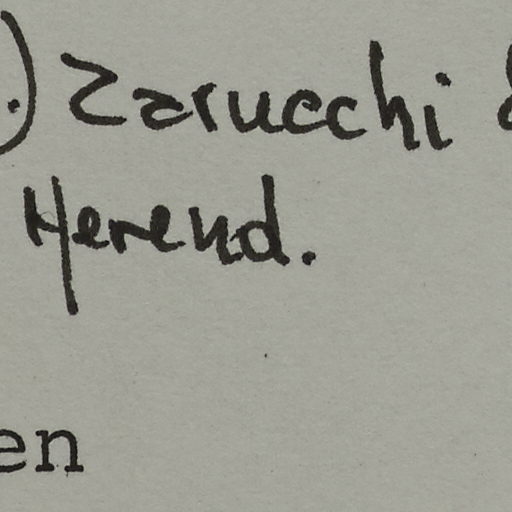 .) Zarucchi &
Herend.
en